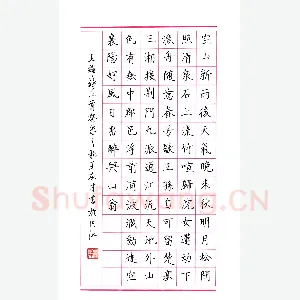 空山新雨後天氣晚来秋明月松間
照清泉石上流竹喧歸浣女蓮動下
漁舟随意春芳歇王孫自可留楚塞
三湘接荆門九派通江流天地外山
色有無中郡邑浮前浦波瀾動遠空
襄陽好風日留醉與山翁
王維詩二首